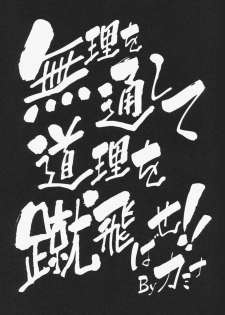 無理を
通して
道理を
蹴飛ばせ!!
By カミナ